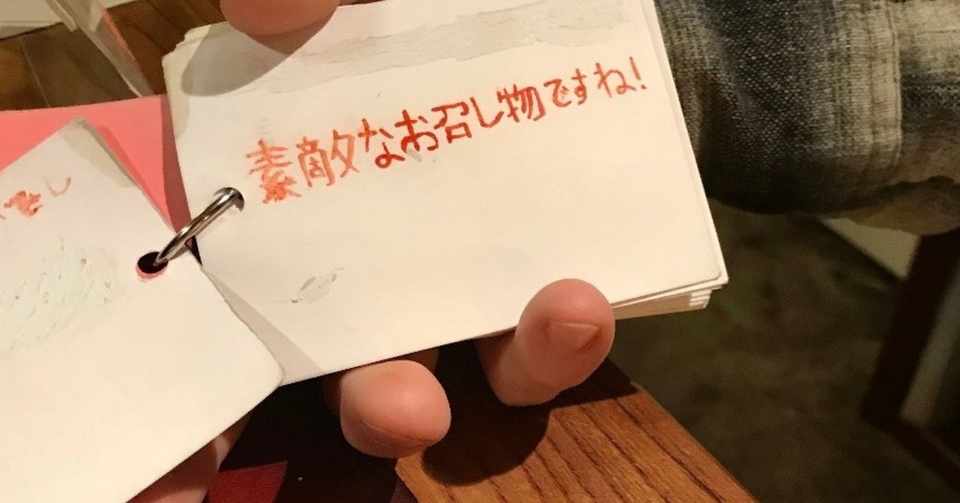 素敵なお召し物ですね!